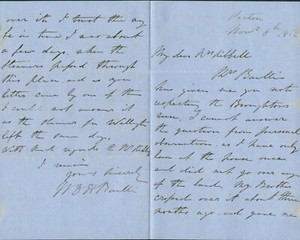 over it. I trust this may
be in time I was about
a few days when the
Steamers passed through
this place and as your
letter came by one of them
I could not answer it
as the steamer for Wellington
left the same day.
With kind regards to
I remain
yours sincerely
Nov 8th
My dear Mr
Mr
has given me you note
respecting the
I cannot answer
the question from personal
observation as I have only
been at the house once
and did not go over any
of the land. My Brother
crossed over it about three
months ago and gave me